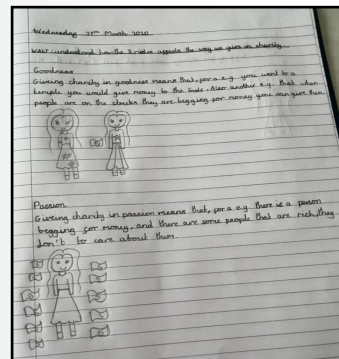 Wednesday 27th March 2020
WALT: understand how the 3 modes affects the way we give in charity.
Goodness
Giveing charity in goodness means that, for a e.g. you went to a
temple you would give money to the Gods. Also another e.g. that when
people are on the streets they are begging for money you can give them.
Passion
Giveing charity in passion means that, for a e.g. there is a person
begging for money, and there are some people that are rich, they
don't to care about them.